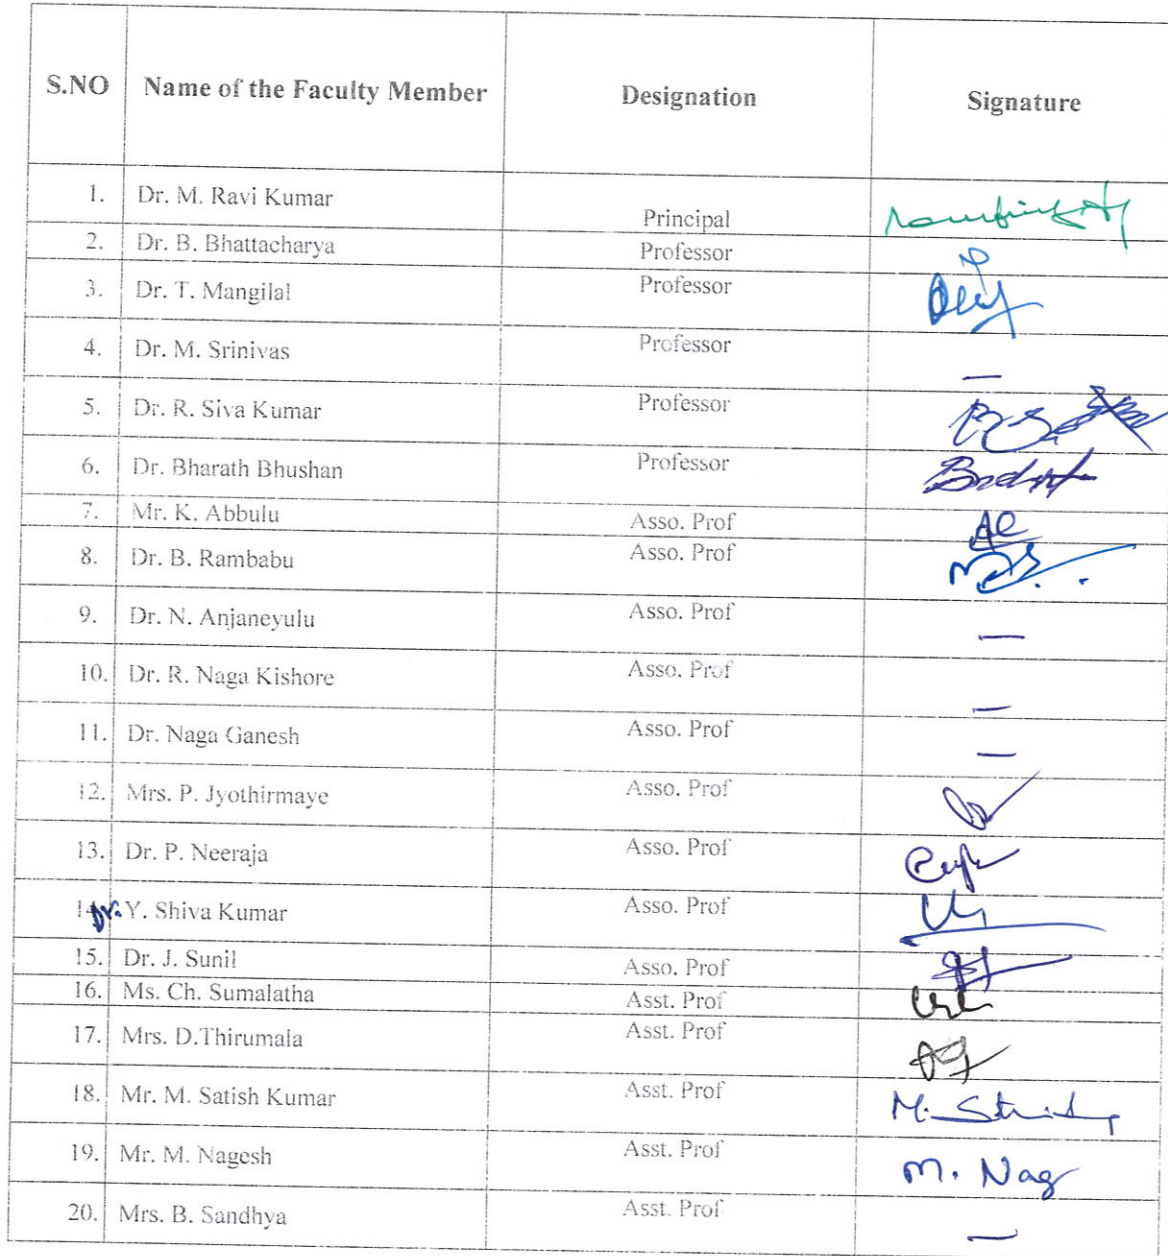 S.NO Name of the Faculty Member Designation Signature
1. Dr. M. Ravi Kumar Principal
2. Dr. B. Bhattacharya Professor
3. Dr. T. Mangilal Professor
4. Dr. M. Srinivas Professor —
5. Dr. R. Siva Kumar Professor
6. Dr. Bharath Bhushan Professor
7. Mr. K. Abbulu Asso. Prof
8. Dr. B. Rambabu Asso. Prof
9. Dr. N. Anjaneyulu Asso. Prof —
10. Dr. R. Naga Kishore Asso. Prof —
11. Dr. Naga Ganesh Asso. Prof —
12. Mrs. P. Jyothirmaye Asso. Prof
13. Dr. P. Neeraja Asso. Prof
14. Dr. Y. Shiva Kumar Asso. Prof
15. Dr. J. Sunil Asso. Prof
16. Ms. Ch. Sumalatha Asst. Prof
17. Mrs. D.Thirumala Asst. Prof
18. Mr. M. Satish Kumar Asst. Prof
19. Mr. M. Nagesh Asst. Prof M. Nag
20. Mrs. B. Sandhya Asst. Prof —